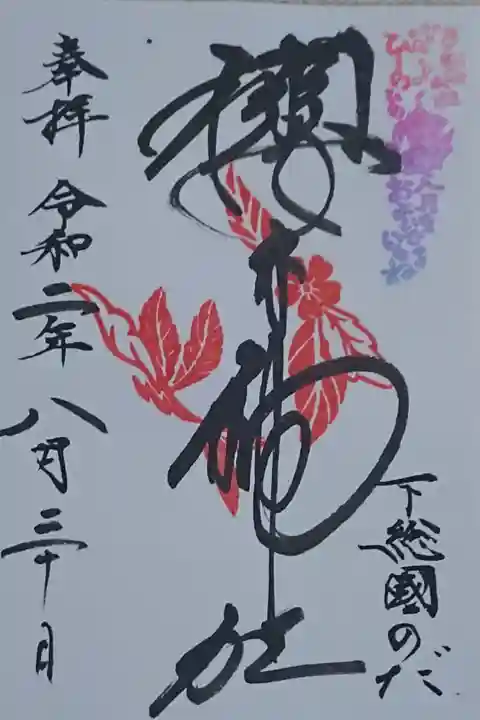 下総國のだ
櫻木神社
奉拝 令和二年 八月三十日